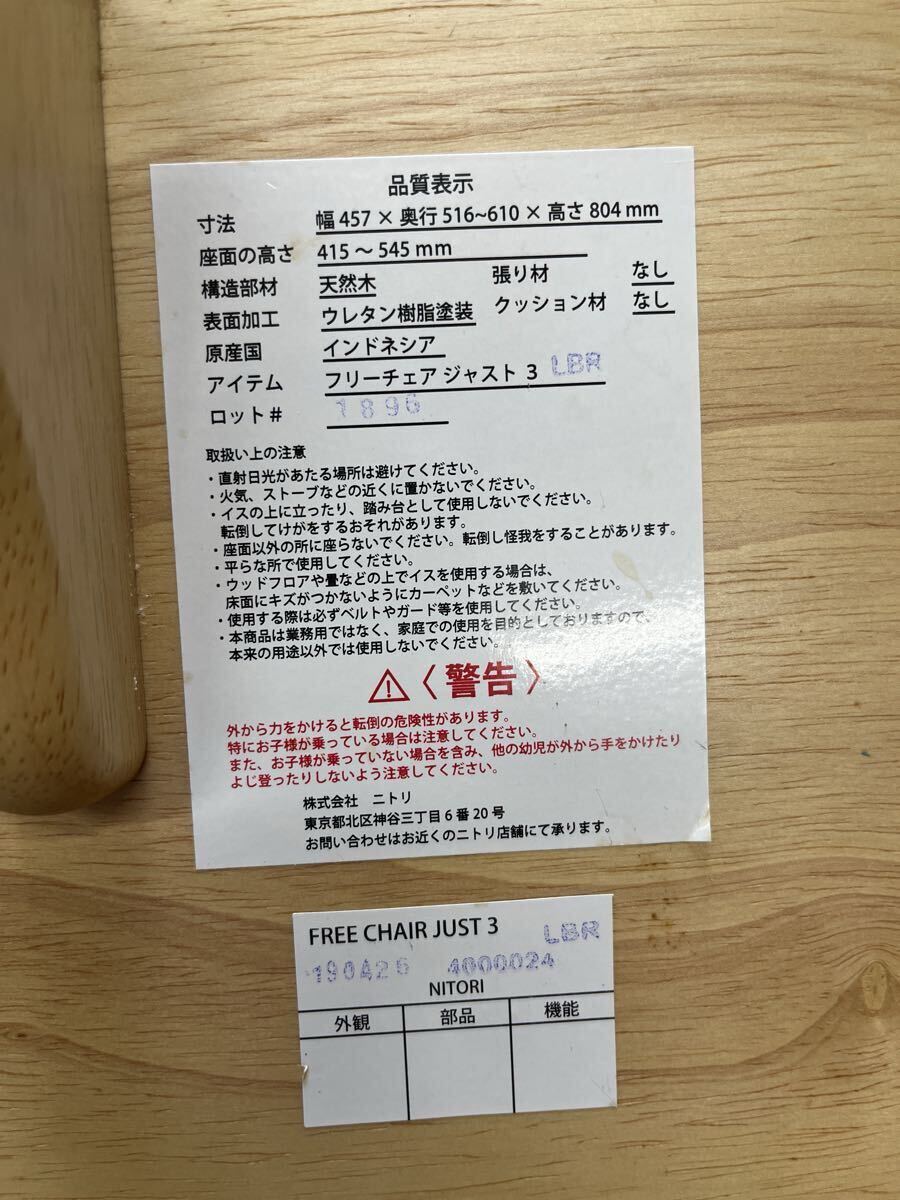 品質表示
寸法 幅 457 × 奥行 516~610 × 高さ 804 mm
座面の高さ 415 ～ 545 mm
構造部材 天然木 張り材 なし
表面加工 ウレタン樹脂塗装 クッション材 なし
原産国 インドネシア
アイテム フリーチェア ジャスト 3 LBR
ロット# 1896
取扱い上の注意
・直射日光があたる場所は避けてください。
・火気、ストーブなどの近くに置かないでください。
・イスの上に立ったり、踏み台として使用しないでください。
転倒してけがをするおそれがあります。
・座面以外の所に座らないでください。転倒し怪我をすることがあります。
・平らな所で使用してください。
・ウッドフロアや畳などの上でイスを使用する場合は、
床面にキズがつかないようにカーペットなどを敷いてください。
・使用する際は必ずベルトやガード等を使用してください。
・本商品は業務用ではなく、家庭での使用を目的としておりますので、
本来の用途以外では使用しないでください。
〈警告〉
外から力をかけると転倒の危険性があります。
特にお子様が乗っている場合は注意してください。
また、お子様が乗っていない場合を含み、他の幼児が外から手をかけたり
よじ登ったりしないよう注意してください。
株式会社 ニトリ
東京都北区神谷三丁目 6 番 20 号
お問い合わせはお近くのニトリ店舗にて承ります。
FREE CHAIR JUST 3 LBR
190426 4000024
NITORI
外観 部品 機能